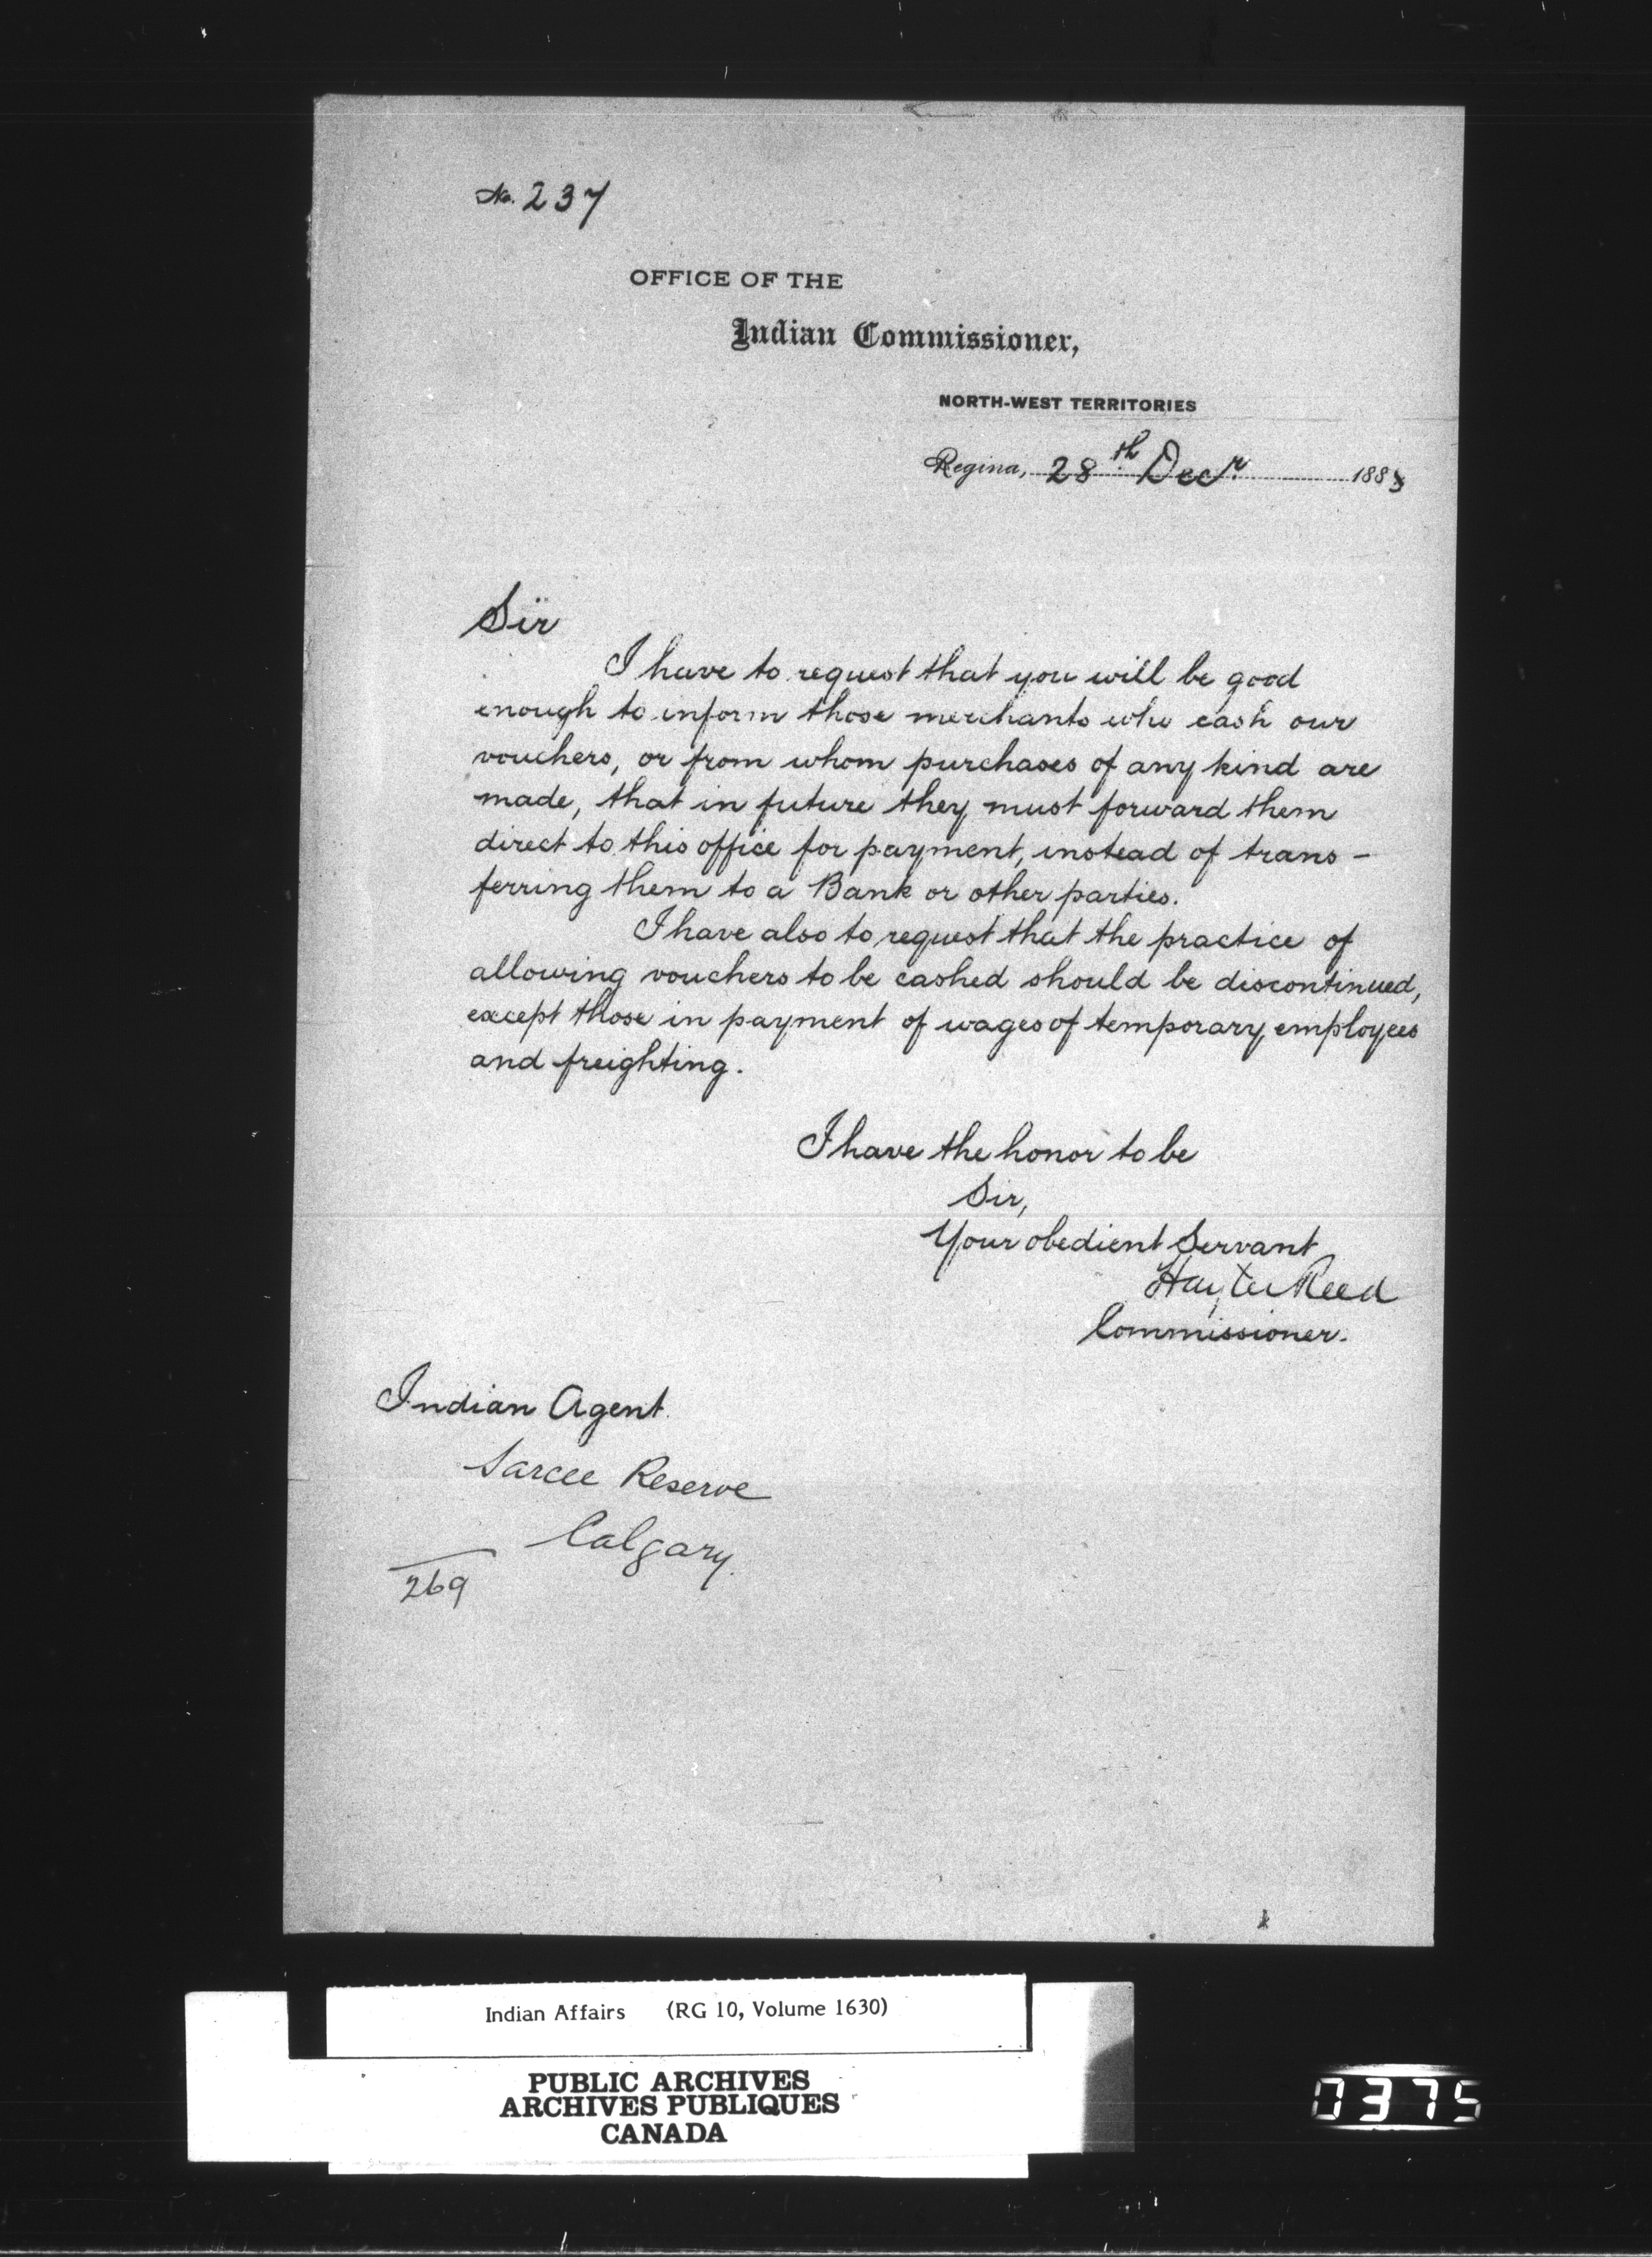 No. 237
OFFICE OF THE
Indian Commissioner,
NORTH-WEST TERRITORIES
Regina, 28th Decr. 188
Sir
I have to request that you will be good
enough to inform those merchants who cash our
vouchers, or from whom purchases of any kind are
made, that in future they must forward them
direct to this office for payment, instead of trans-
ferring them to a Bank or other parties.
I have also to request that the practice of
allowing vouchers to be cashed should be discontinued,
except those in payment of wages of temporary employees
and freighting.
I have the honor to be
Sir,
Your obedient Servant
Hayter Reed
Commissioner.
Indian Agent.
Sarcee Reserve
Calgary.
269
Indian Affairs (RG 10, Volume 1630)
PUBLIC ARCHIVES
ARCHIVES PUBLIQUES
CANADA
0375